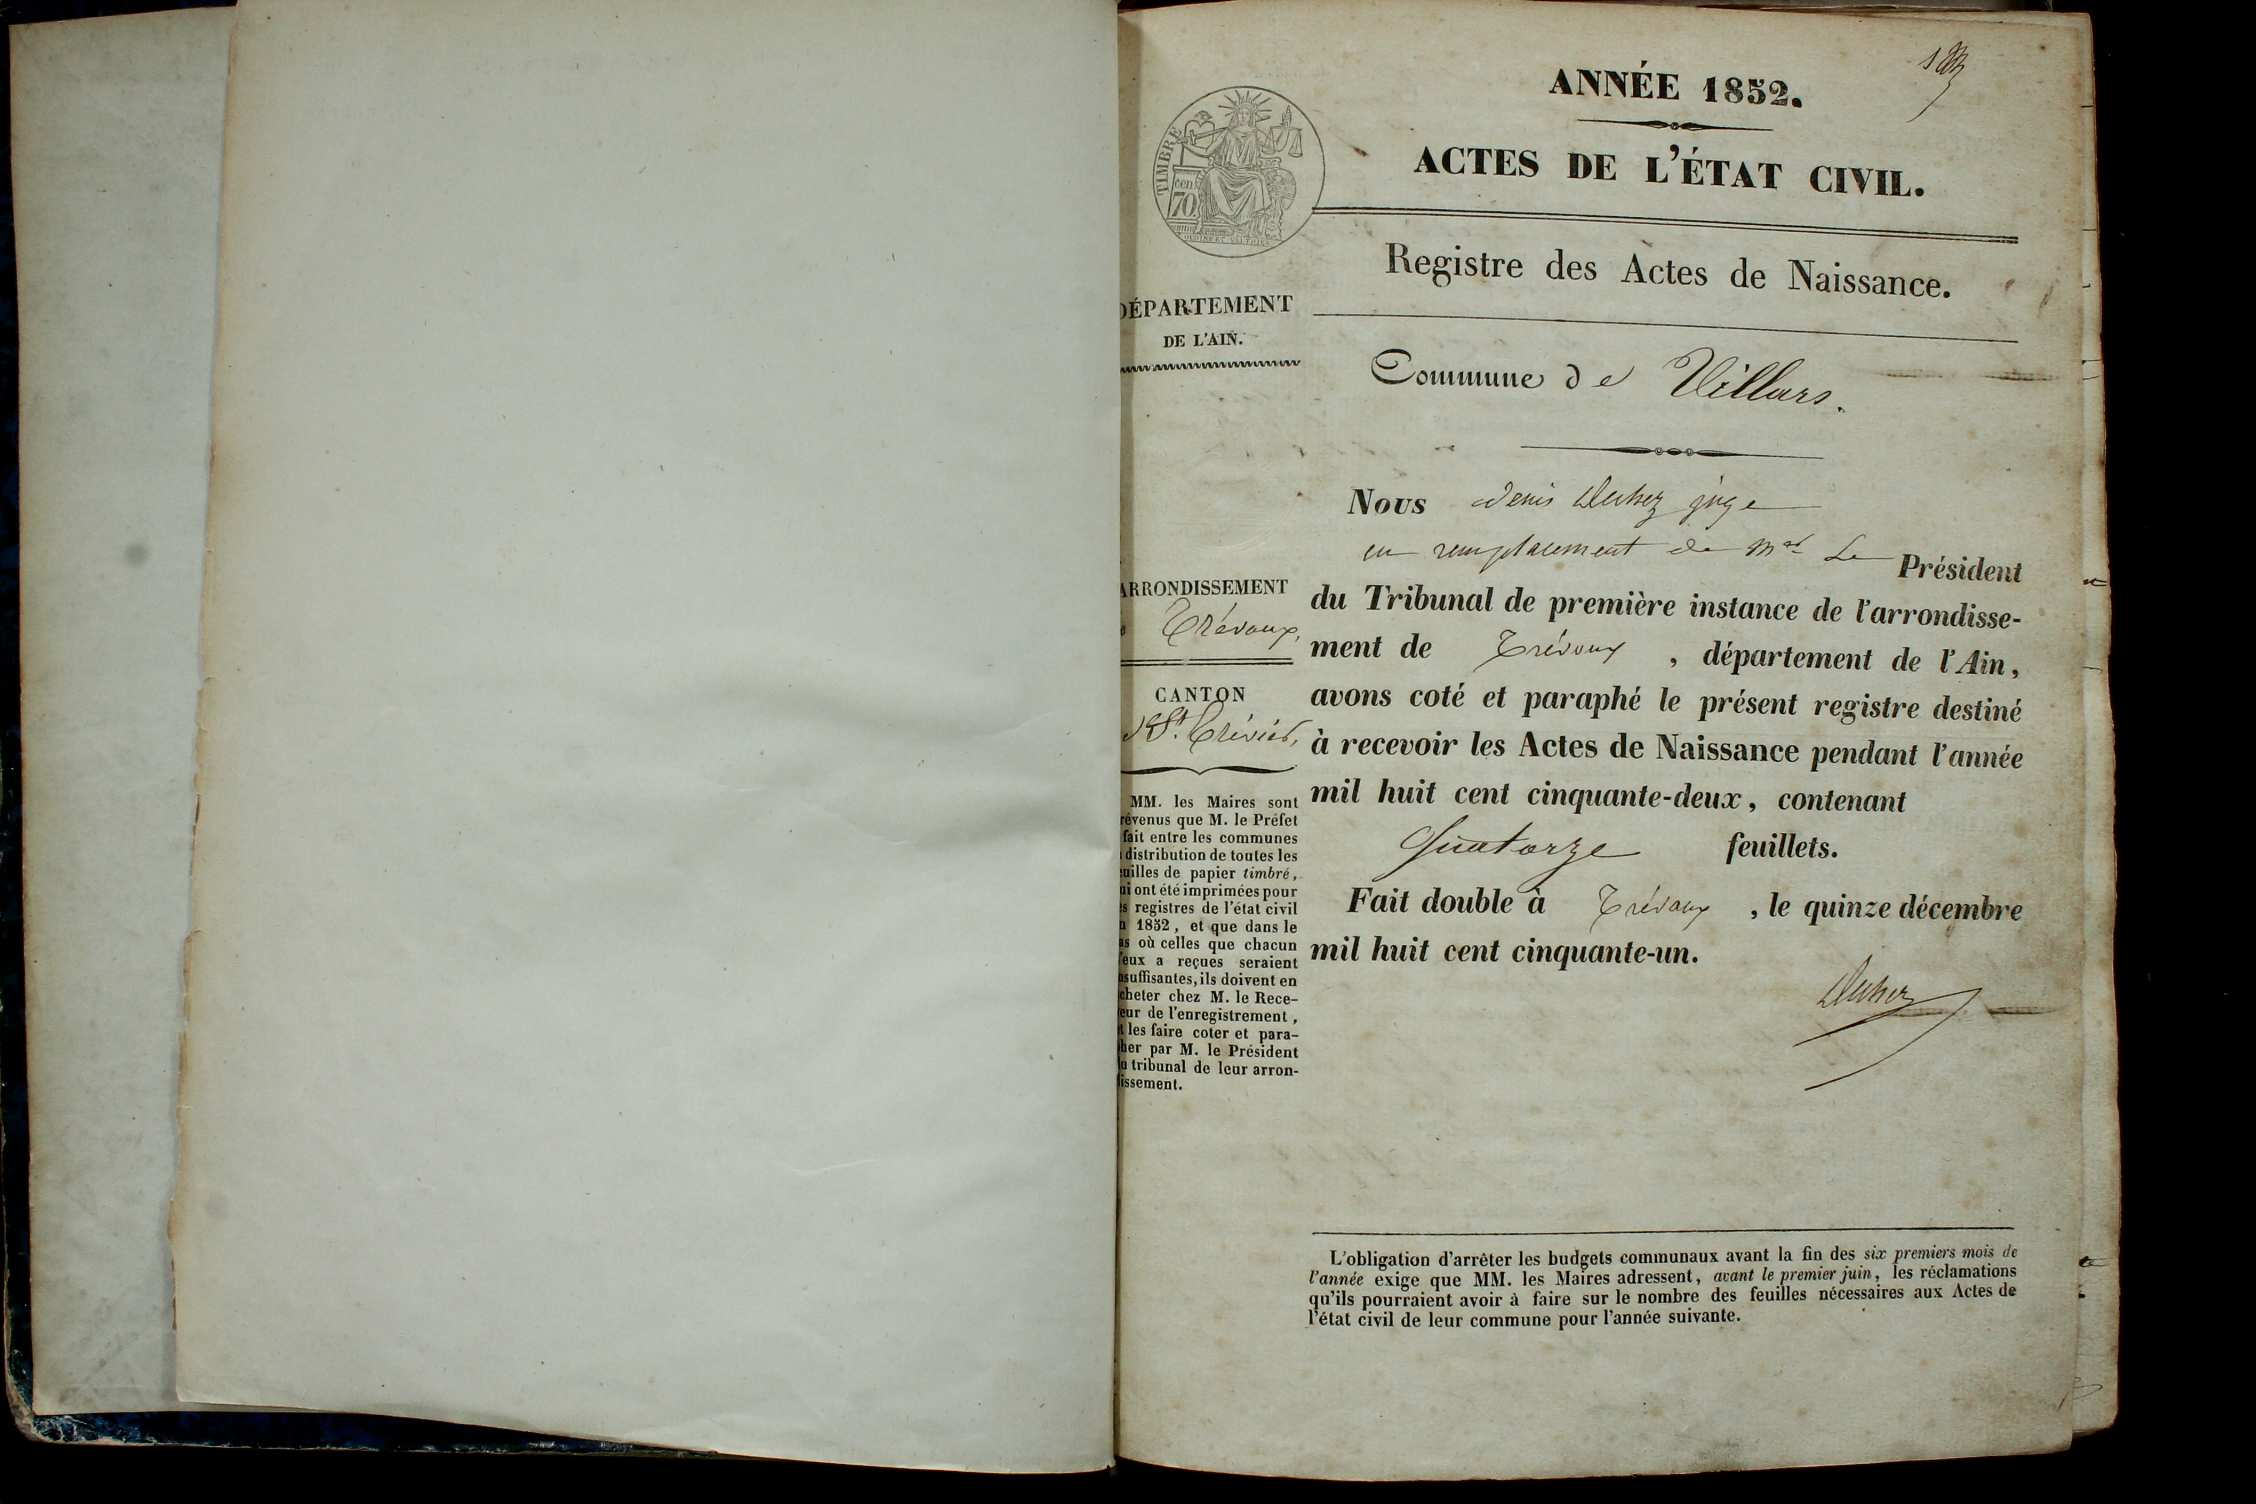 1
ANNÉE 1852.
ACTES DE L'ÉTAT CIVIL.
TIMBRE
cen
70
Registre des Actes de Naissance.
DÉPARTEMENT
DE L'AIN.
Commune de Villars.
Nous Denis juge
en remplacement de Mr Le Président
du Tribunal de première instance de l'arrondisse-
ment de Trévoux, département de l'Ain,
avons coté et paraphé le présent registre destiné
à recevoir les Actes de Naissance pendant l'année
mil huit cent cinquante-deux, contenant
Quatorze feuillets.
Fait double à Trévoux, le quinze décembre
mil huit cent cinquante-un.
ARRONDISSEMENT
Trévoux,
CANTON
St. Trivier,
MM. les Maires sont
révenus que M. le Préfet
fait entre les communes
distribution de toutes les
uilles de papier timbré,
ui ont été imprimées pour
es registres de l'état civil
n 1852, et que dans le
as où celles que chacun
'eux a reçues seraient
nsuffisantes, ils doivent en
cheter chez M. le Rece-
eur de l'enregistrement,
t les faire coter et para-
her par M. le Président
u tribunal de leur arron-
issement.
L'obligation d'arrêter les budgets communaux avant la fin des six premiers mois de
l'année exige que MM. les Maires adressent, avant le premier juin, les réclamations
qu'ils pourraient avoir à faire sur le nombre des feuilles nécessaires aux Actes de
l'état civil de leur commune pour l'année suivante.